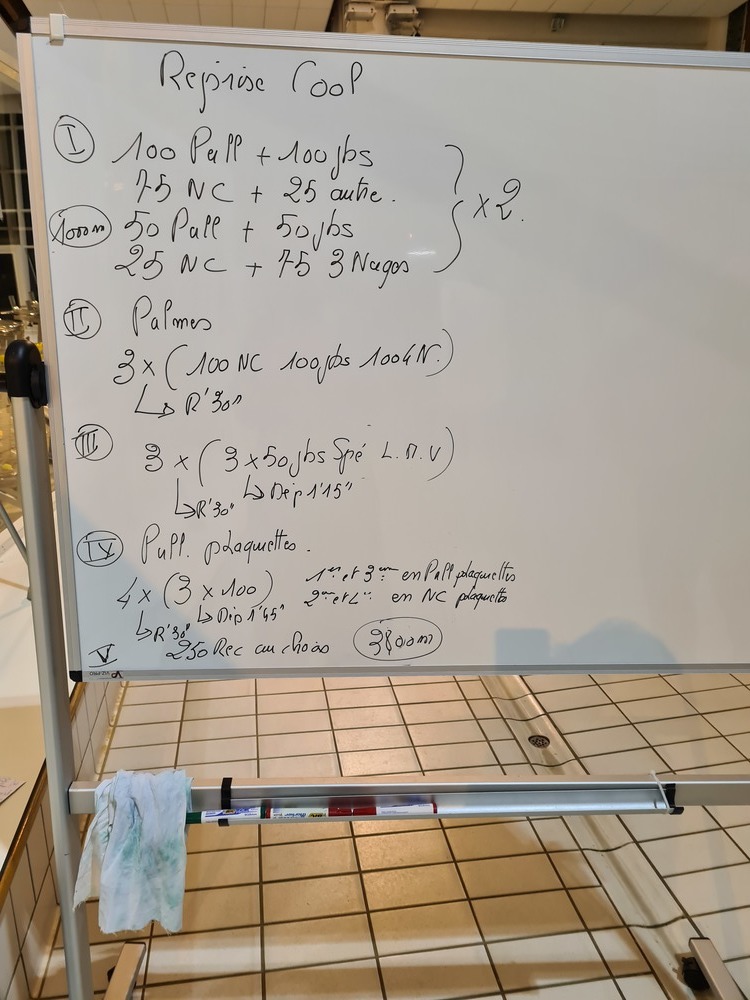 Reprise Cool
I 100 Pull + 100 jbs
75 NC + 25 autre.
1000m 50 Pull + 50 jbs } x2.
25 NC + 75 3 Nages
II Palmes
3 x (100 NC 100 jbs 100 4N.)
↳ R'30"
III 3 x (3 x 50 jbs Spé L.M.V)
↳ R'30" ↳ Dép 1'15"
IV Pull. plaquettes.
4 x (3 x 100) 1er et 3ème en Pull plaquettes
↳ R'30" ↳ Dép 1'45" 2ème et 4è en NC plaquettes
V 250 Rec au choix 3800m